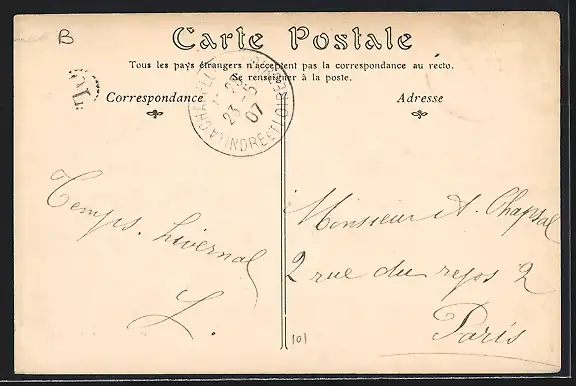 B
Carte Postale
Tous les pays étrangers n'acceptent pas la correspondance au recto.
Se renseigner à la poste.
Correspondance
Adresse
23-5
07
INDRE ET LOIRE
Temps. hivernal
L.
Monsieur A. Chapsal
2 rue du repos 2
Paris
101